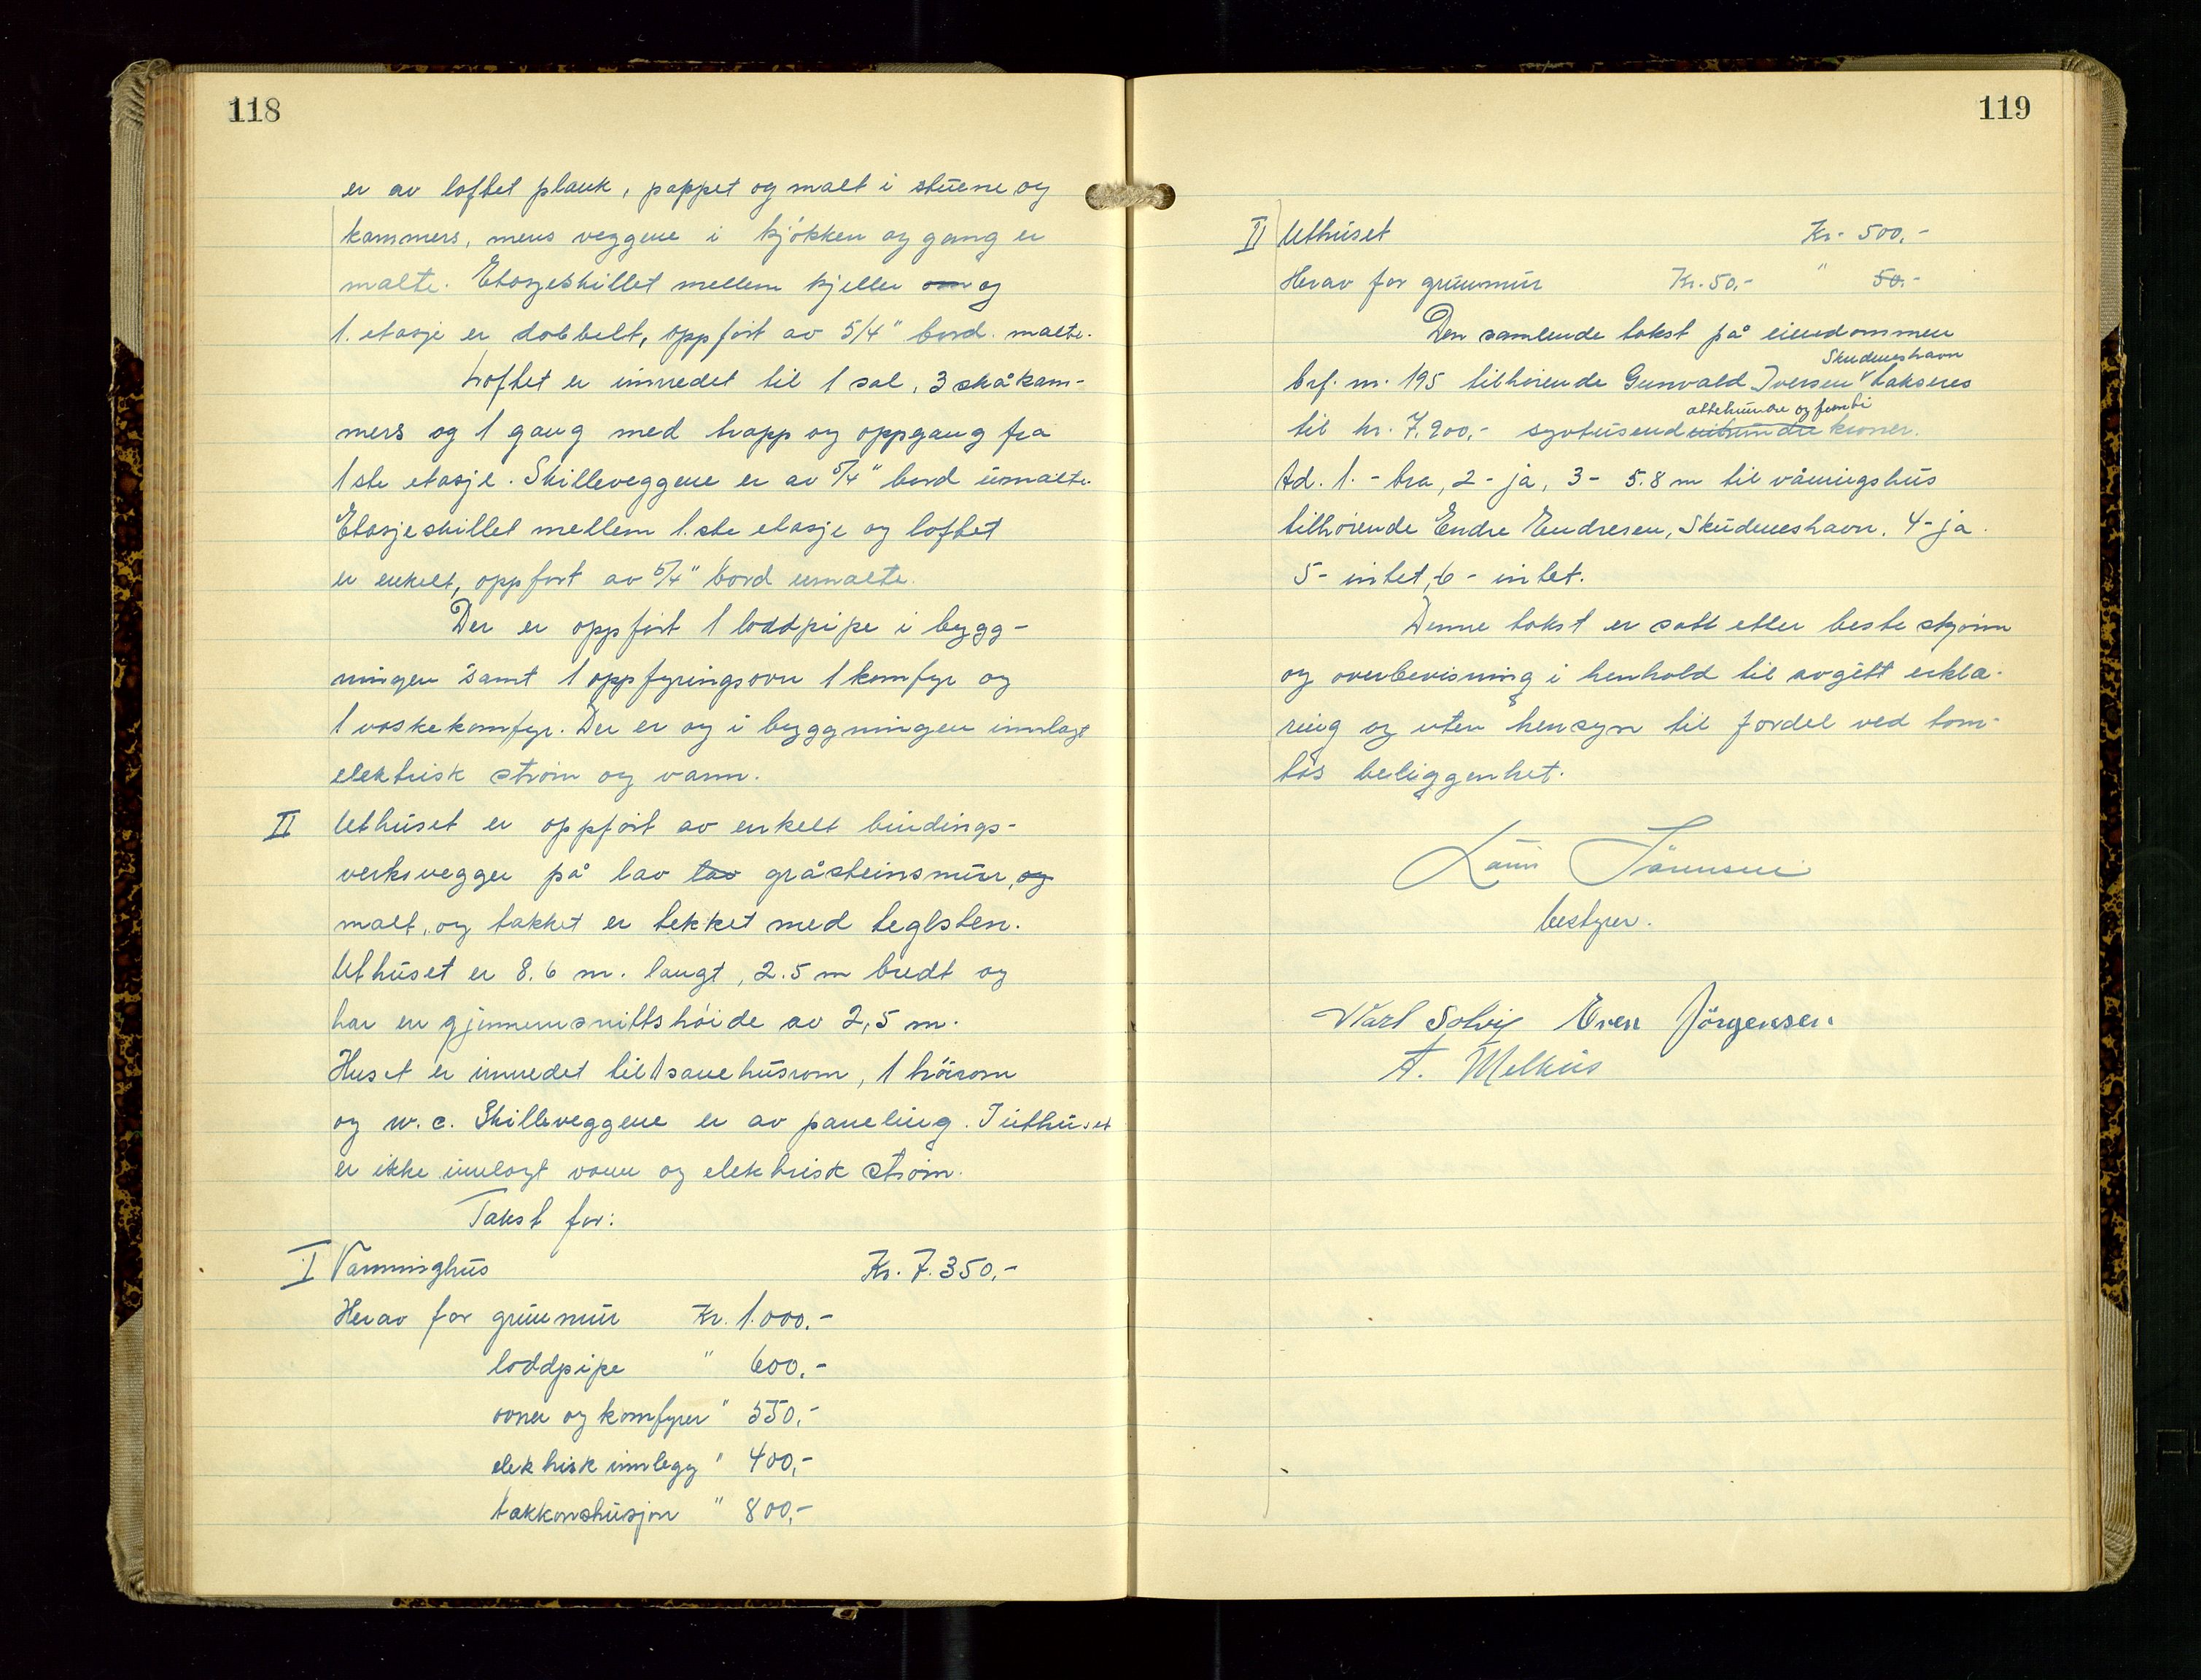 118
er av loftet plank, pappet og malt i stuene og
kammers, mens veggene i kjøkken og gang er
malte. Etasjeskillet mellem kjeller om og
1. etasje er dobbelt, oppført av 5/4" bord malte.
Loftet er innredet til 1 sal, 3 skåkam-
mers og 1 gang med trapp og oppgang fra
1ste etasje. Skilleveggene er av 5/4" bord umalte.
Etasjeskillet mellem 1.ste etasje og loftet
er enkelt, oppført av 5/4" bord umalte.
Der er oppført 1 loddpipe i bygg-
ningen samt 1 oppfyringsovn 1 komfyr og
1 vaskekomfyr. Der er og i byggningen innlagt
elektrisk strøm og vann.
II Uthuset er oppført av enkelt bindings-
verksvegger på lav lav gråsteinsmur, og
malt, og takket er tekket med teglsten.
Uthuset er 8.6 m. langt, 2.5 m bredt og
har en gjennemsnittshøide av 2,5 m.
Huset er innredet til 1 sauehusrom, 1 høirom
og w.c. Skilleveggene er av paneling. I uthuset
er ikke innlagt vann og elektrisk strøm.
Takst for:
I Vanninghus Kr. 7.350,-
Herav for grunnmur Kr. 1.000.-
loddpipe " 600.-
ovner og komfyrer " 550,-
elektrisk innlegg " 400,-
takkonstusjon " 800,-
119
II Uthuset Kr. 500.-
Herav for grunnmur Kr. 50,- " 50.-
Den samlende takst på eiendommen
Skudeneshavn
brf. nr. 195 tilhørende Gunvald Iversen v takseres
attehundre og femti
til kr. 7.900,- syvtusend nihundre kroner.
Ad. 1. - bra, 2 - ja, 3 - 5.8 m til våningshus
tilhørende Endre Endresen, Skudeneshavn. 4 - ja.
5 - intet, 6 - intet.
Denne takst er satt etter beste skjønn
og overbevisning i henhold til avgitt erklæ-
ring og uten hensyn til fordel ved tom-
tås beliggenhet.
bestyrer.
Karl Solvig Sven Jörgensen
A. Melhus